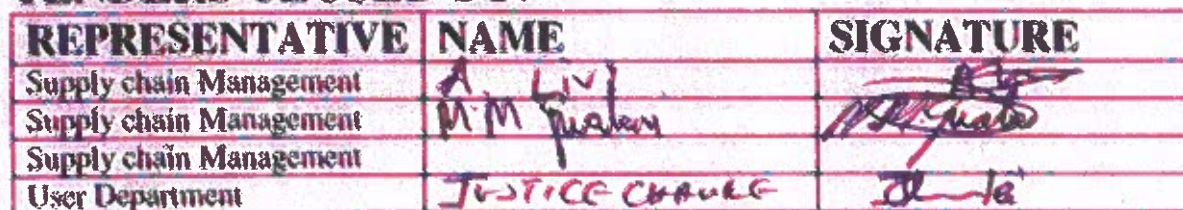 REPRESENTATIVE NAME SIGNATURE
Supply chain Management A. LIVI
Supply chain Management M M
Supply chain Management
User Department JUSTICE CHAUKE